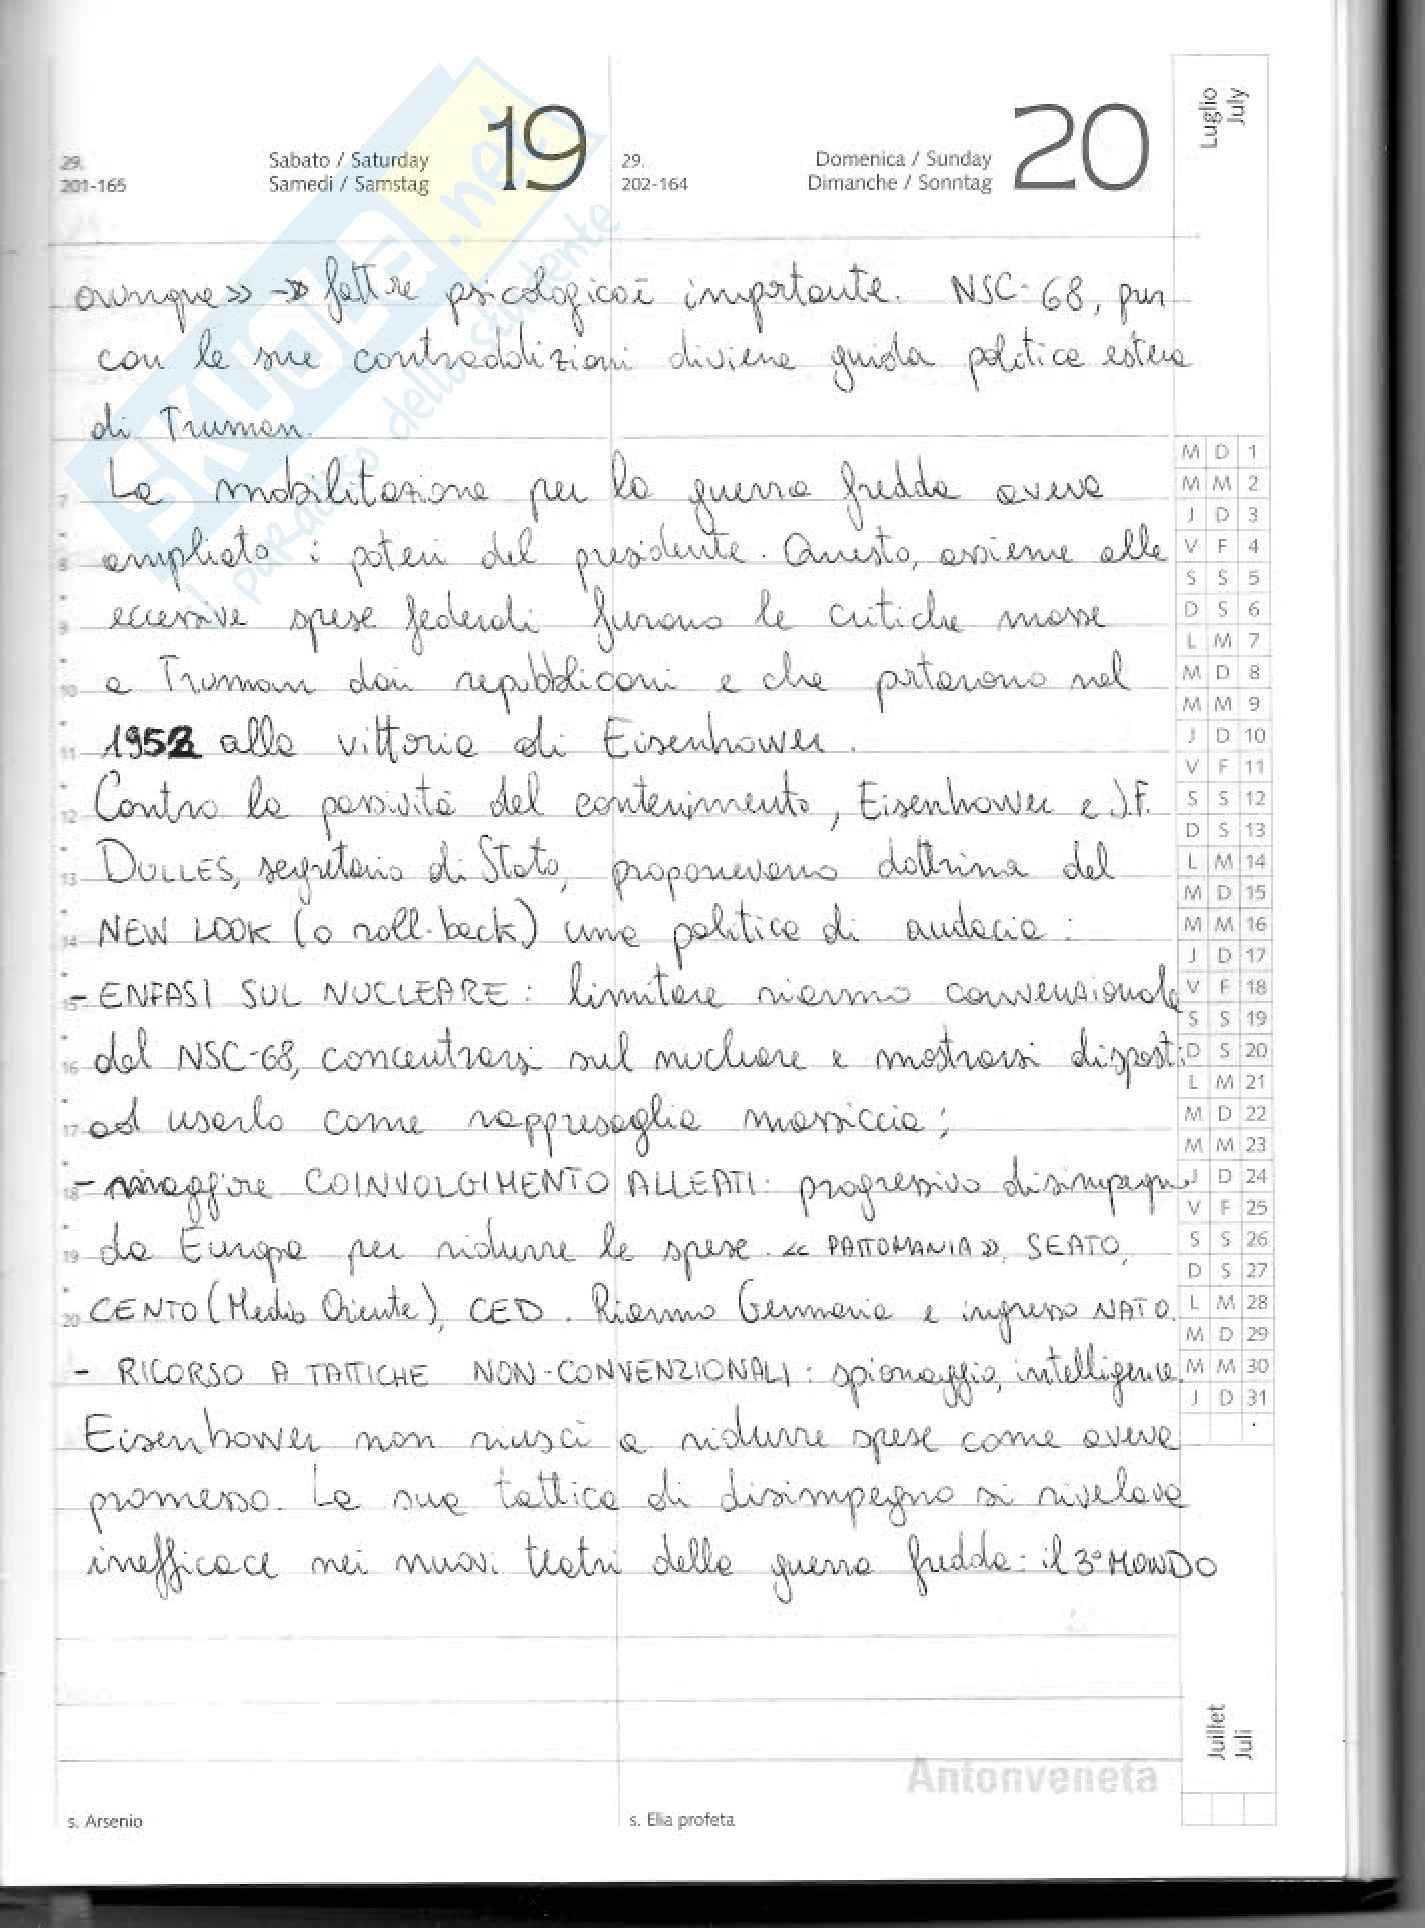 Luglio
July
29.
201-165
Sabato / Saturday
Samedi / Samstag
19
29.
202-164
Domenica / Sunday
Dimanche / Sonntag
20
SKUOLA.net
il paradiso dello studente
ovunque» → fattore psicologico è importante. NSC-68, pur
con le sue contraddizioni diviene guida politica estera
di Truman.
La mobilitazione per la guerra fredda aveva
ampliato i poteri del presidente. Questo, assieme alle
eccessive spese federali furono le critiche mosse
a Truman dai repubblicani e che portarono nel
1952 alla vittoria di Eisenhower.
Contro la passività del contenimento, Eisenhower e J.F.
DULLES, segretario di Stato, proponevano dottrina del
NEW LOOK (o roll-back) una politica di audacia:
- ENFASI SUL NUCLEARE: limitare riarmo convenzionale
del NSC-68, concentrarsi sul nucleare e mostrarsi disposti
ad usarlo come rappresaglia massiccia;
- maggiore COINVOLGIMENTO ALLEATI: progressivo disimpegno
da Europa per ridurre le spese. «PATTOMANIA», SEATO,
CENTO (Medio Oriente), CED. Riarmo Germania e ingresso NATO.
- RICORSO A TATTICHE NON-CONVENZIONALI: spionaggio, intelligence.
Eisenhower non riuscì a ridurre spese come aveva
promesso. La sua tattica di disimpegno si rivelava
inefficace nei nuovi teatri della guerra fredda: il 3° MONDO
7
8
9
10
11
12
13
14
15
16
17
18
19
20
M D 1
M M 2
J D 3
V F 4
S S 5
D S 6
L M 7
M D 8
M M 9
J D 10
V F 11
S S 12
D S 13
L M 14
M D 15
M M 16
J D 17
V F 18
S S 19
D S 20
L M 21
M D 22
M M 23
J D 24
V F 25
S S 26
D S 27
L M 28
M D 29
M M 30
J D 31
Juillet
Juli
Antonveneta
s. Arsenio
s. Elia profeta